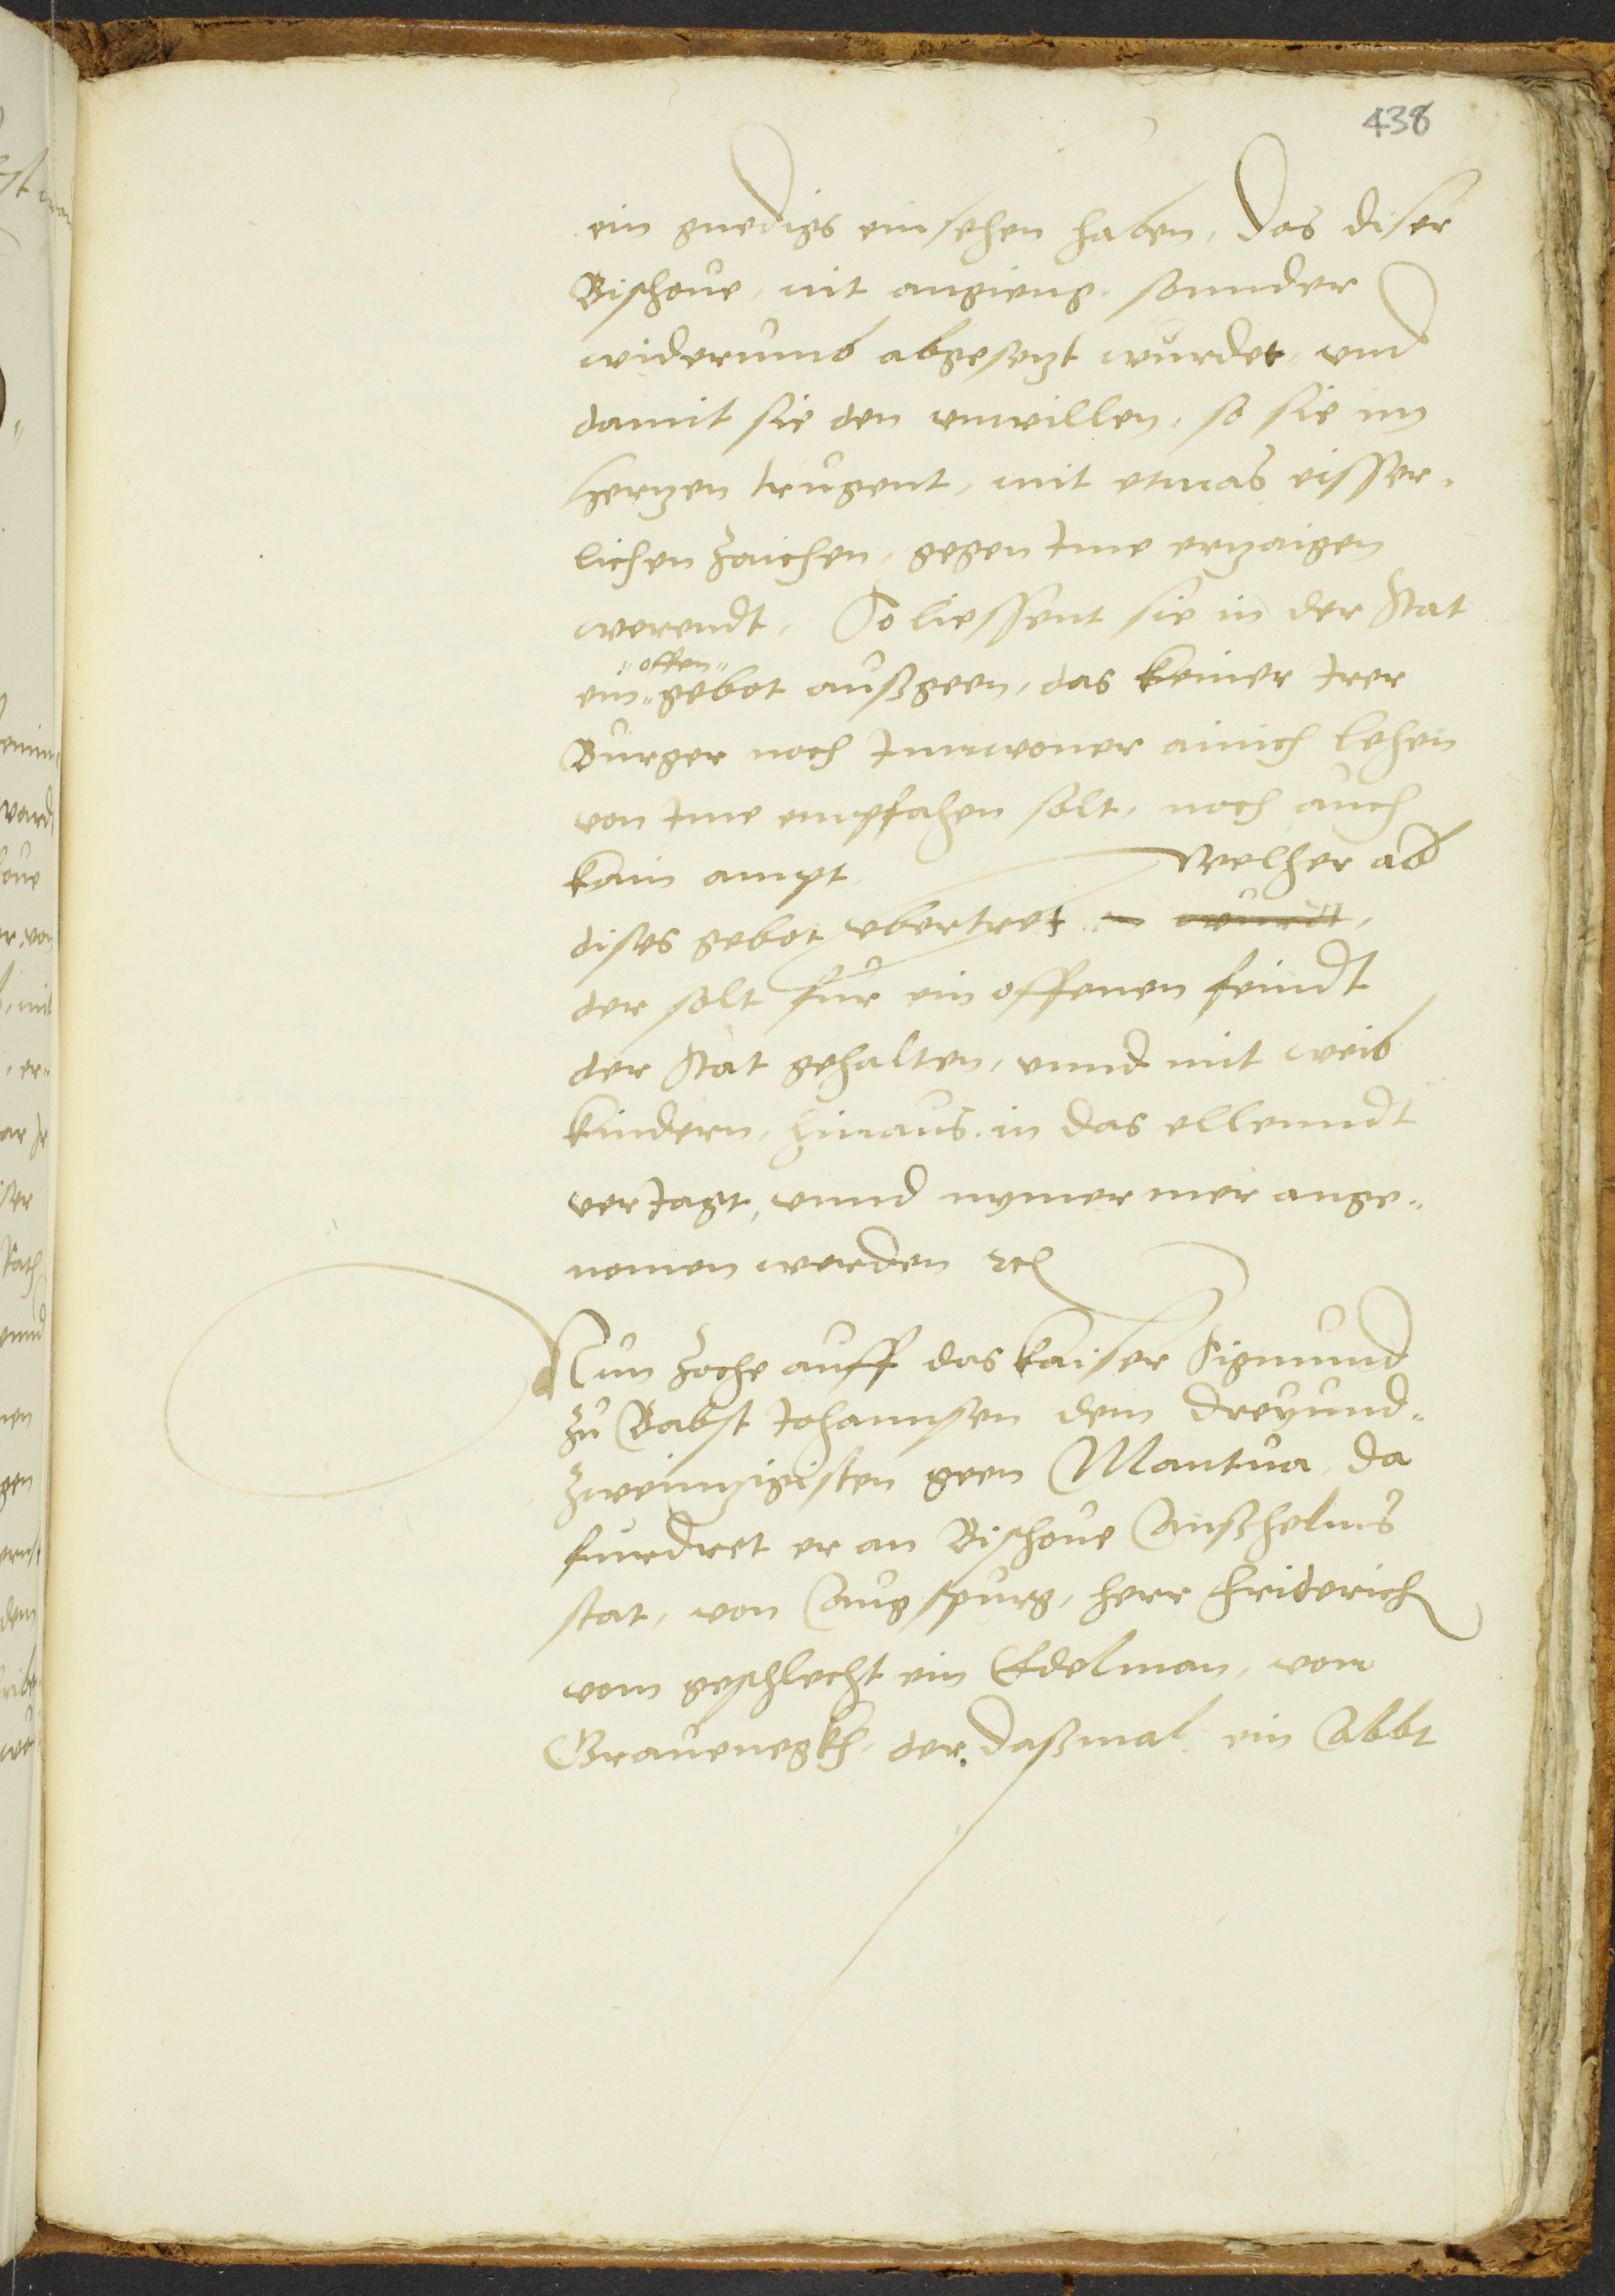 438
ein gnedigs einsehen haben, das diser
Bischoue, nit angieng. sonnder
widerumb abgesetzt wurdet, und
damit sie den unwillen, so sie im
hertzen trugent, mit etwas eisser,
lichen zaichen, gegen Ime erzaigen
werendt, So liessent sie in der Stat
"offen"
ein "gebot außgeen, das keiner Irer
Burger noch Innwoner ainich lehen
von Ime empfahen solt, noch auch
kain ampt, Welher ab
dises gebot ubertret wurdt,
der solt fur ein offenen feindt
der Stat gehalten, unnd mit weib
kindern, hinaus in das ellenndt
verJagt, unnd nymer mer ange"
nomen werden etc
Nun zoche auff das kaiser Sigmund
zu Babst Johannsen dem dreyund"
zweintzigisten geen Mantua, da
furdret er an Bischoue Annßhelms
stat, von Augspurg, herr Friderich
vom geschlecht ein Edelman, von
Grauenegkh, der daßmal ein Abbt